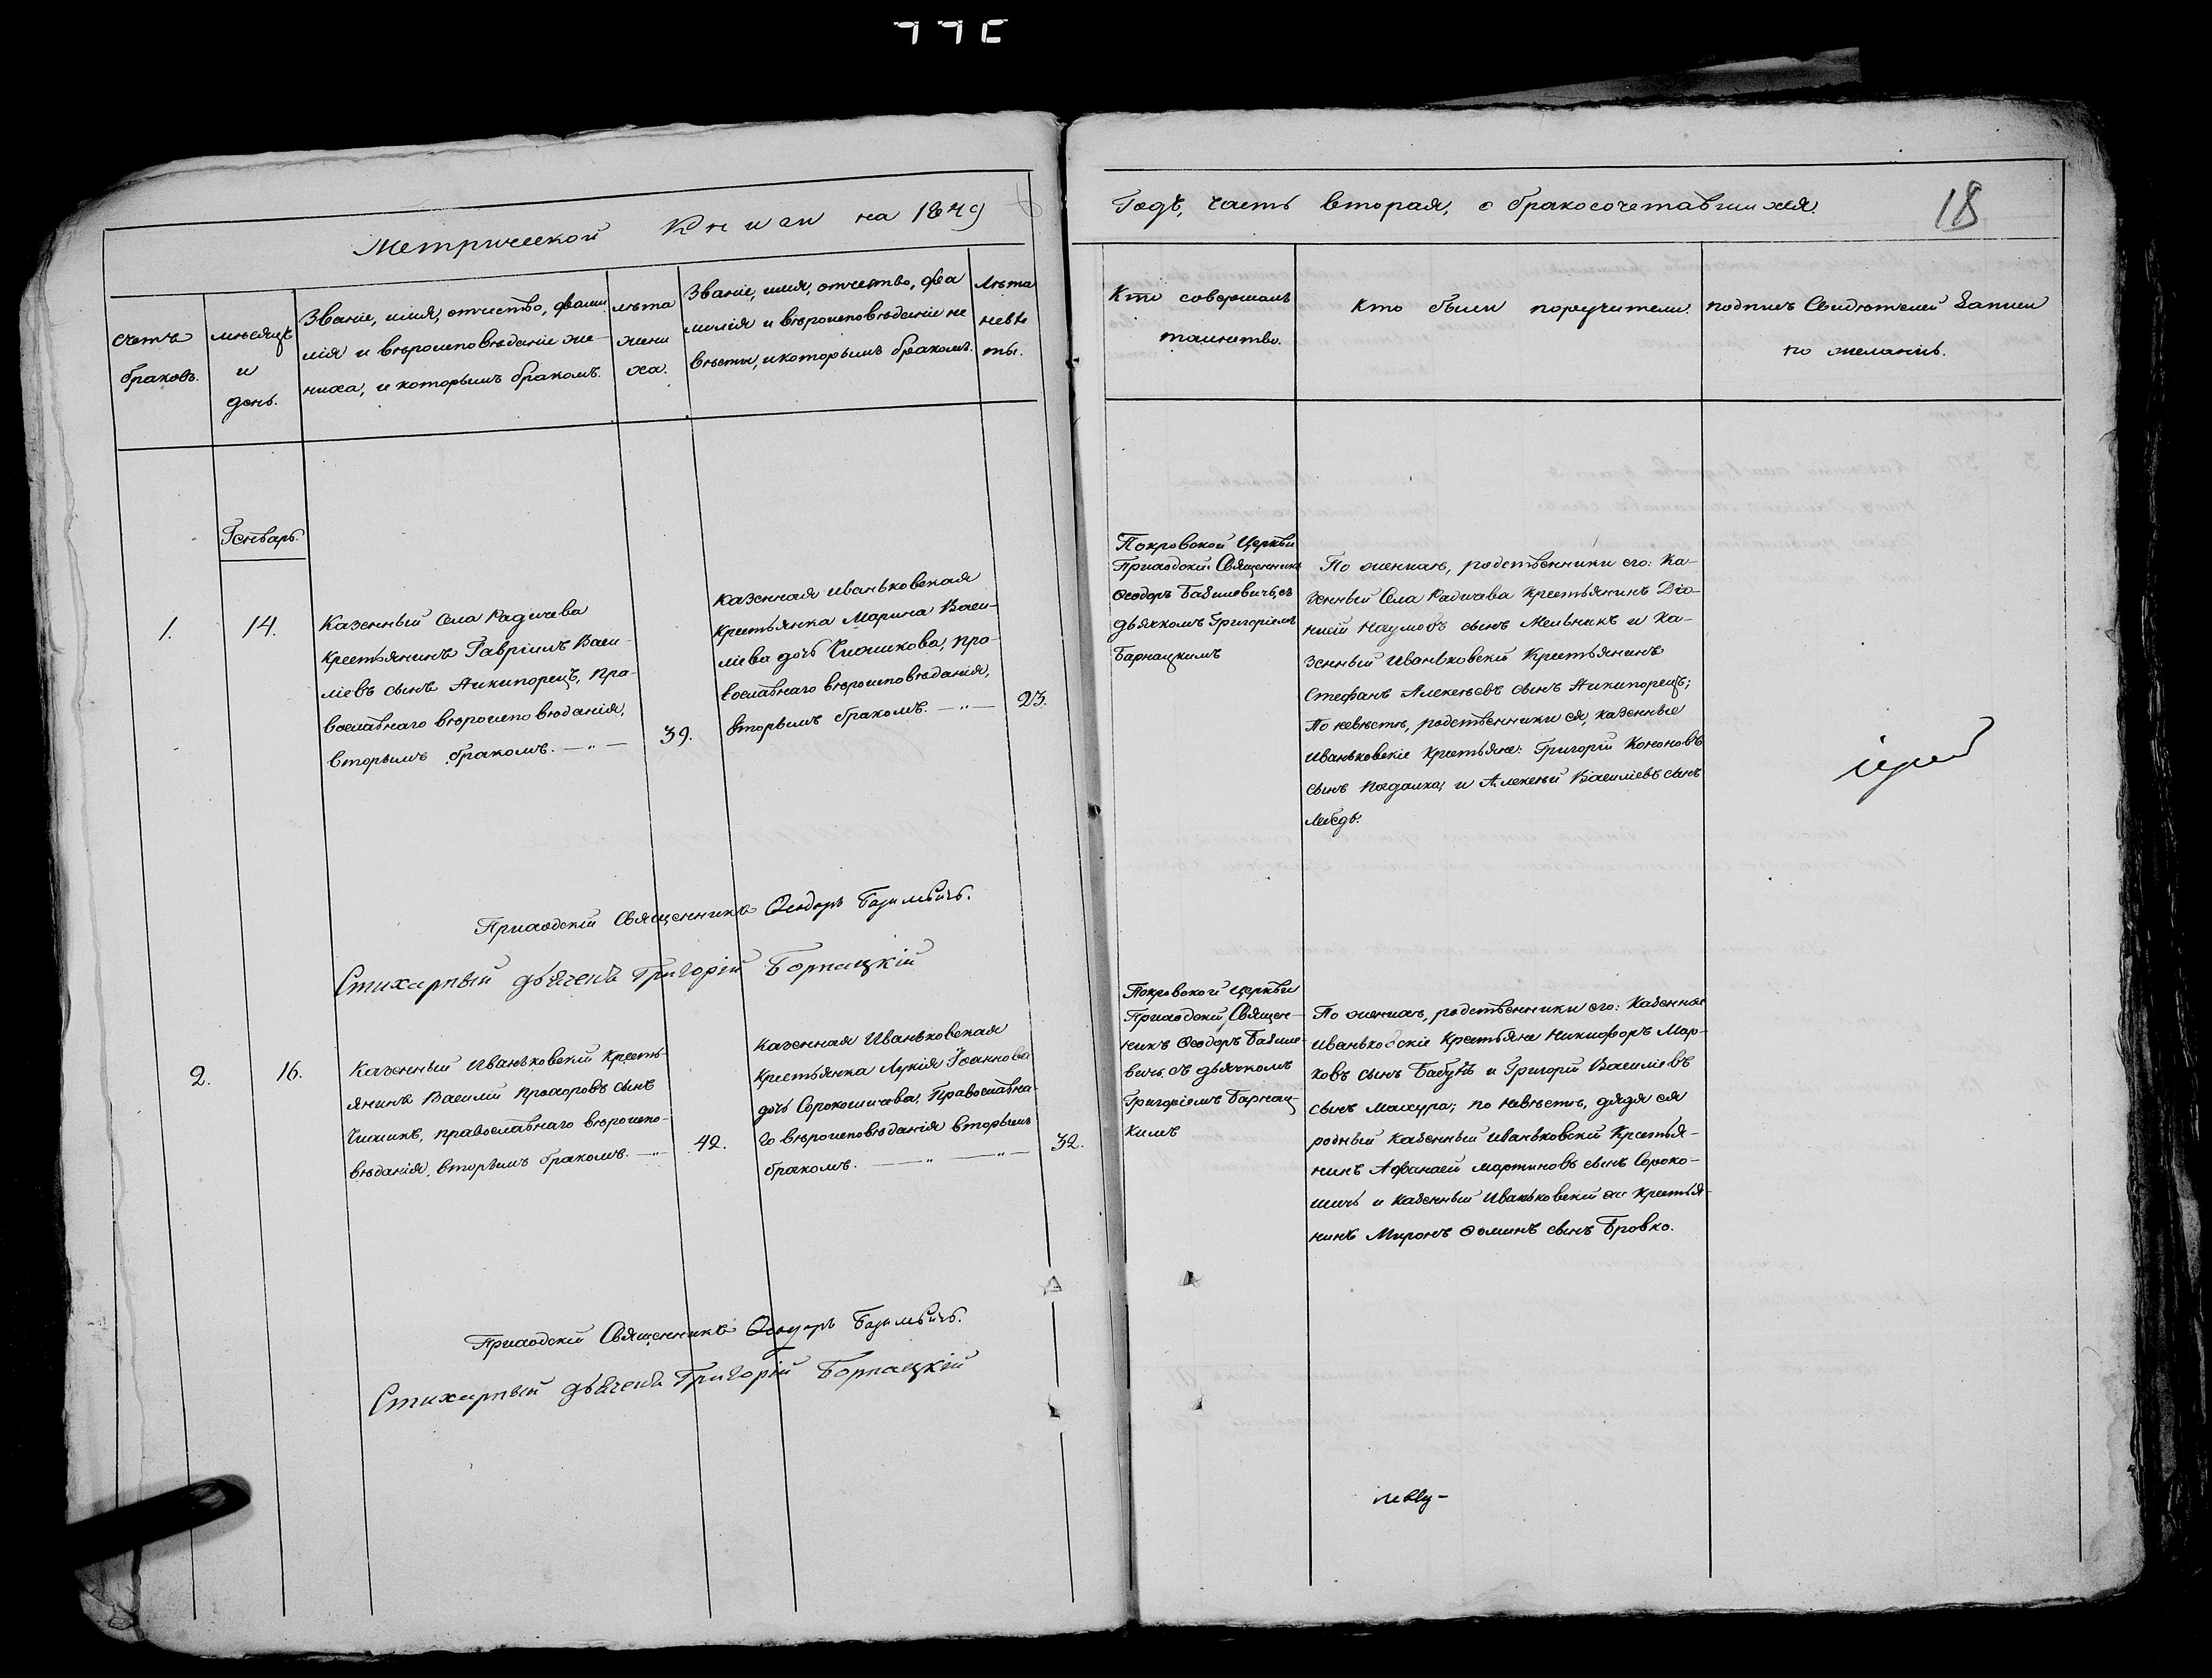 Метрической Книги на 1849
Годъ, часть вторая, о бракосочетавшихся.
18
счетъ
браковъ.
мѣсяцъ
и
день.
Званіе, имя, отчество, фами
лія и вѣроисповѣданіе же-
ниха, и которымъ бракомъ.
лѣта
жени
ха.
Званіе, имя, отчество, фа
милія и вѣроисповѣданіе не
вѣсты, и которымъ бракомъ.
лѣта
невѣ
ты.
Кто совершалъ
таинство.
Кто были поручители.
подпись Свидѣтелей Записи
по желанію.
Январь.
1.
14.
Казенный Села Радичева
Крестьянинъ Гавріилъ Васи-
ліевъ сынъ Никипорецъ, пра-
вославнаго вѣроисповѣданія,
вторымъ бракомъ. — „ —
39.
Казенная Иваньковская
Крестьянка Марина Васи-
ліева дочь Чижикова, пра-
вославнаго вѣроисповѣданія,
вторымъ бракомъ. — „ —
23.
Покровской Церкви
Приходскій Священникъ
Ѳеодоръ Базилевичъ, съ
дьячкомъ Григоріемъ
Барнацкимъ
По женихѣ, родственники его: Ка-
зенный Села Радичева Крестьянинъ Діо-
нисій Наумовъ сынъ Мельникъ и Ка-
зенный Иваньковскій Крестьянинъ
Стефанъ Алексѣевъ сынъ Никипорецъ;
По невѣстѣ, родственники ея, казенные
Иваньковскіе Крестьяне: Григорій Кононовъ
сынъ и Алексѣй Василіевъ сынъ
Лебедь.
іерей
Приходскій Священникъ Ѳеодоръ Базилевичъ.
Стихарный дьячекъ Григорій Борнацкій
2.
16.
Казенный Иваньковскій Кресть-
янинъ Василій Прохоровъ сынъ
Чижикъ, православнаго вѣроиспо-
вѣданія, вторымъ бракомъ. — „ —
42.
Казенная Иваньковская
Крестьянка Лукія Іоаннова
дочь Сорокошичева, Православна-
го вѣроисповѣданія вторымъ
бракомъ. — „ — „ —
32.
Покровской Церкви
Приходскій Священ-
никъ Ѳеодоръ Базиле-
вичь, съ дьячкомъ
Григоріемъ Барнац-
кимъ
По женихѣ, родственники его: Казенные
Иваньковскіе Крестьяне Никифоръ Мар-
ковъ сынъ Бабунъ и Григорій Василіевъ
сынъ Мохура; по невѣстѣ, дядя ея
родный казенный Иваньковскій Крестья-
нинъ Афанасій Мартиновъ сынъ Сороко-
шичь и казенный Иваньковскій же Крестья-
нинъ Миронъ Ѳоминъ сынъ Бровко.
Приходскій Священникъ Ѳеодоръ Базилевичъ.
Стихарный дьячекъ Григорій Борнацкій